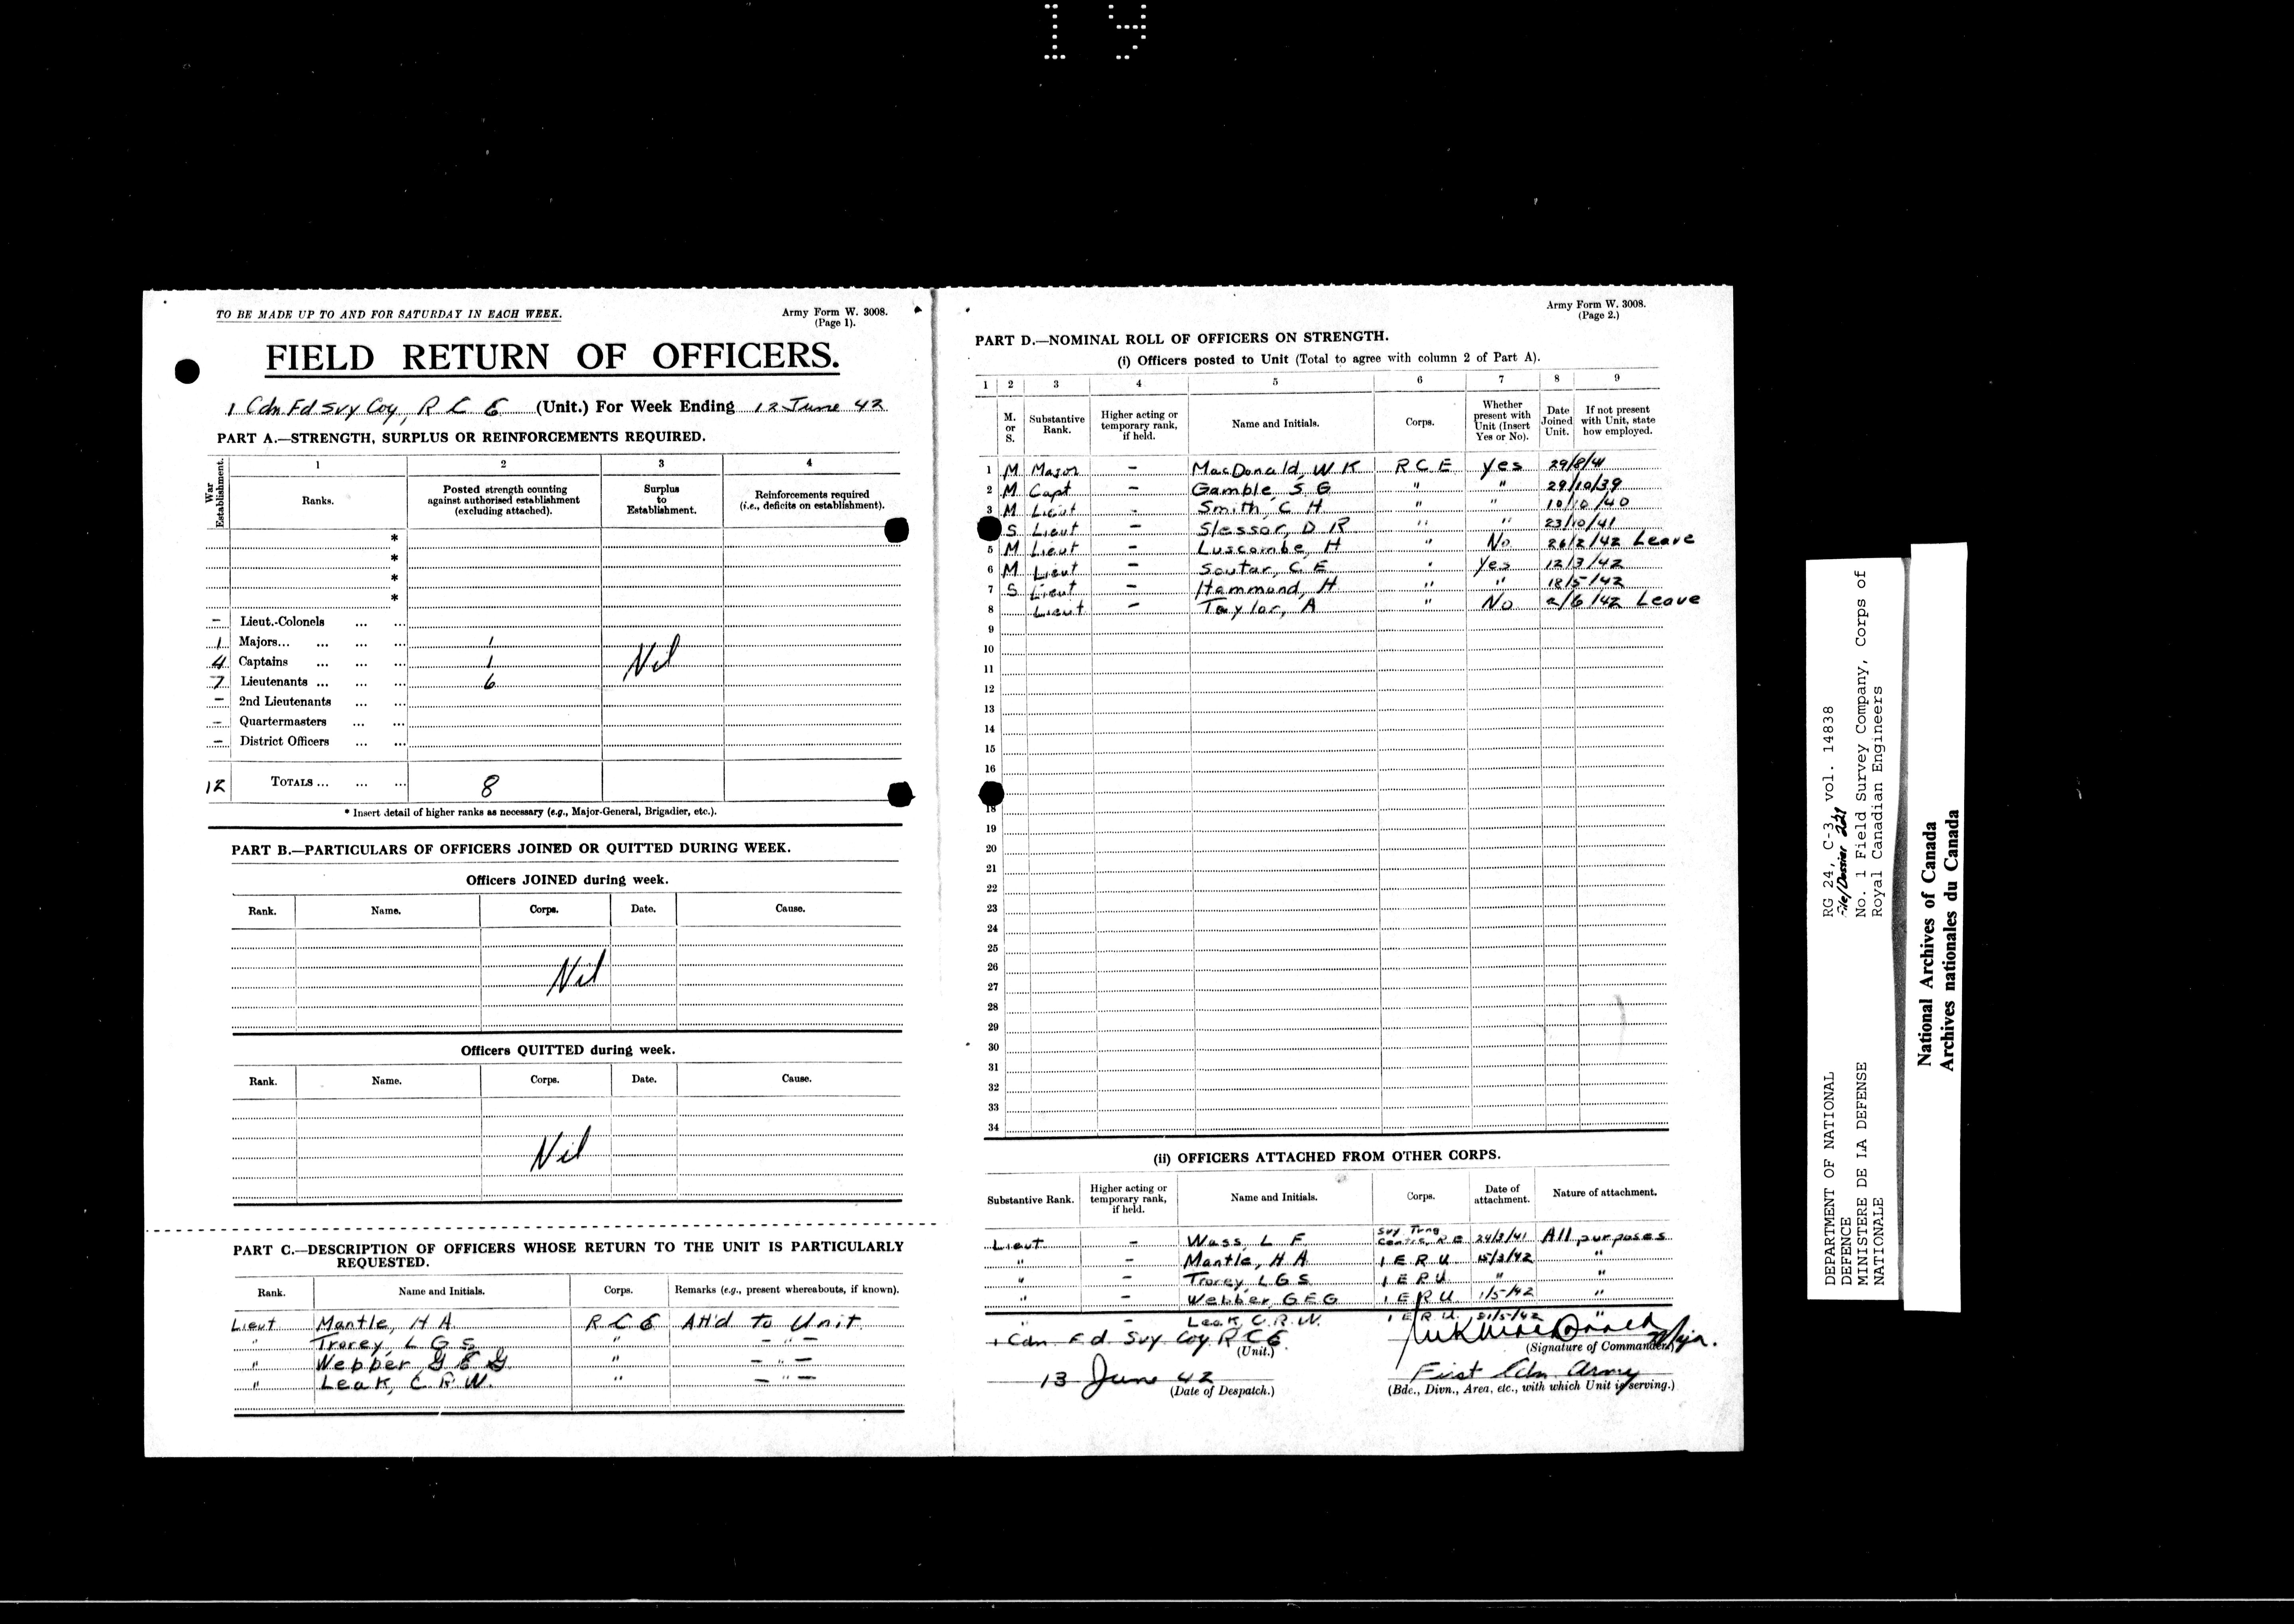 19
TO BE MADE UP TO AND FOR SATURDAY IN EACH WEEK.
Army Form W. 3008.
(Page 1).
FIELD RETURN OF OFFICERS.
1 Cdn Fd Svy Coy, R C E (Unit.) For Week Ending 12 June 42
PART A.—STRENGTH, SURPLUS OR REINFORCEMENTS REQUIRED.
War Establishment.
1 2 3 4
Ranks. Posted strength counting against authorised establishment (excluding attached). Surplus to Establishment. Reinforcements required (i.e., deficits on establishment).
*
*
*
*
– Lieut.-Colonels ... ...
1 Majors... ... ... ... 1
4 Captains ... ... ... 1 Nil
7 Lieutenants ... ... ... 6
– 2nd Lieutenants ... ...
– Quartermasters ... ...
– District Officers ... ...
12 TOTALS ... ... ... 8
* Insert detail of higher ranks as necessary (e.g., Major-General, Brigadier, etc.).
PART B.—PARTICULARS OF OFFICERS JOINED OR QUITTED DURING WEEK.
Officers JOINED during week.
Rank. Name. Corps. Date. Cause.
Nil
Officers QUITTED during week.
Rank. Name. Corps. Date. Cause.
Nil
PART C.—DESCRIPTION OF OFFICERS WHOSE RETURN TO THE UNIT IS PARTICULARLY
REQUESTED.
Rank. Name and Initials. Corps. Remarks (e.g., present whereabouts, if known).
Lieut Mantle, H A R C E Att'd to Unit
" Trorey, L G S " – " –
" Webber G E G " – " –
" Leak, C R W. " – " –
Army Form W. 3008.
(Page 2.)
PART D.—NOMINAL ROLL OF OFFICERS ON STRENGTH.
(i) Officers posted to Unit (Total to agree with column 2 of Part A).
1 2 3 4 5 6 7 8 9
M. or S. Substantive Rank. Higher acting or temporary rank, if held. Name and Initials. Corps. Whether present with Unit (Insert Yes or No). Date Joined Unit. If not present with Unit, state how employed.
1 M Major – MacDonald, W K R C E Yes 29/8/41
2 M Capt – Gamble, S G " " 29/10/39
3 M Lieut – Smith, C H " " 10/10/40
S Lieut – Slessor, D R " " 23/10/41
5 M Lieut – Luscombe, H " No 26/2/42 Leave
6 M Lieut – Soutar, C E " Yes 12/3/42
7 S Lieut – Hammond, H " " 18/5/42
8 Lieut – Taylor, A " No 2/6/42 Leave
9
10
11
12
13
14
15
16
18
19
20
21
22
23
24
25
26
27
28
29
30
31
32
33
34
(ii) OFFICERS ATTACHED FROM OTHER CORPS.
Substantive Rank. Higher acting or temporary rank, if held. Name and Initials. Corps. Date of attachment. Nature of attachment.
Lieut – Wass, L F Svy Trng Centre, R E 24/3/41 All purposes
" – Mantle, H A 1 E R U 15/3/42 "
" – Trorey L G S 1 E R U " "
" – Webber, G E G 1 E R U 1/5/42 "
" – Leak, C. R. W. 1 E R U 31/5/42 "
1 Cdn Fd Svy Coy R C E
(Unit.)
W K MacDonald Major.
(Signature of Commander.)
13 June 42
(Date of Despatch.)
First Cdn Army
(Bde., Divn., Area, etc., with which Unit is serving.)
DEPARTMENT OF NATIONAL
DEFENCE
MINISTERE DE LA DEFENSE
NATIONALE
RG 24, C-3, vol. 14838
File/Dossier 221
No. 1 Field Survey Company, Corps of
Royal Canadian Engineers
National Archives of Canada
Archives nationales du Canada